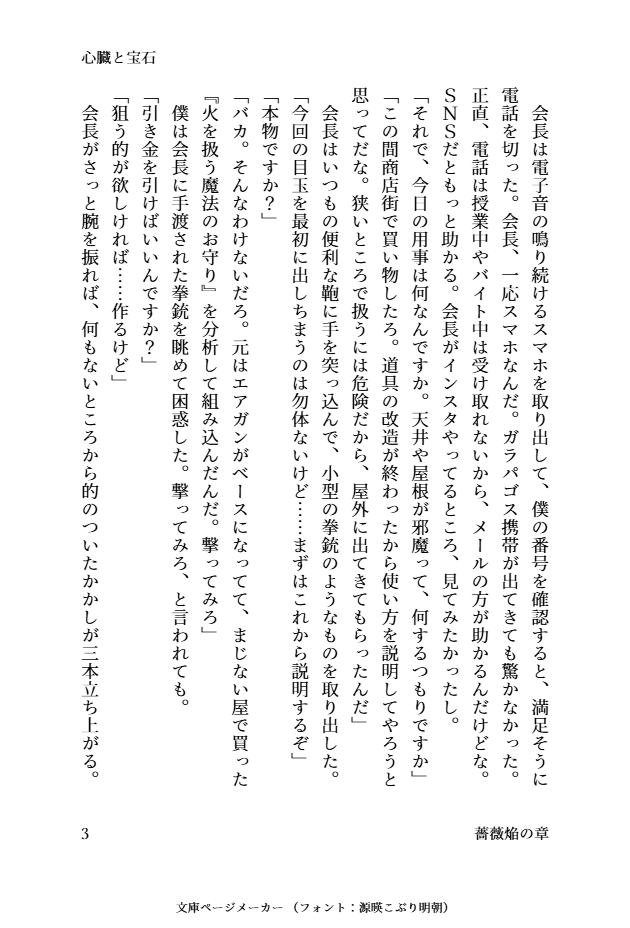 心臓と宝石
　会長は電子音の鳴り続けるスマホを取り出して、僕の番号を確認すると、満足そうに
電話を切った。会長、一応スマホなんだ。ガラパゴス携帯が出てきても驚かなかった。
正直、電話は授業中やバイト中は受け取れないから、メールの方が助かるんだけどな。
ＳＮＳだともっと助かる。会長がインスタやってるところ、見てみたかったし。
「それで、今日の用事は何なんですか。天井や屋根が邪魔って、何するつもりですか」
「この間商店街で買い物したろ。道具の改造が終わったから使い方を説明してやろうと
思ってだな。狭いところで扱うには危険だから、屋外に出てきてもらったんだ」
　会長はいつもの便利な鞄に手を突っ込んで、小型の拳銃のようなものを取り出した。
「今回の目玉を最初に出しちまうのは勿体ないけど……まずはこれから説明するぞ」
「本物ですか？」
「バカ。そんなわけないだろ。元はエアガンがベースになってて、まじない屋で買った
『火を扱う魔法のお守り』を分析して組み込んだんだ。撃ってみろ」
　僕は会長に手渡された拳銃を眺めて困惑した。撃ってみろ、と言われても。
「引き金を引けばいいんですか？」
「狙う的が欲しければ……作るけど」
　会長がさっと腕を振れば、何もないところから的のついたかかしが三本立ち上がる。
薔薇焔の章
3
文庫ページメーカー（フォント：源暎こぶり明朝）